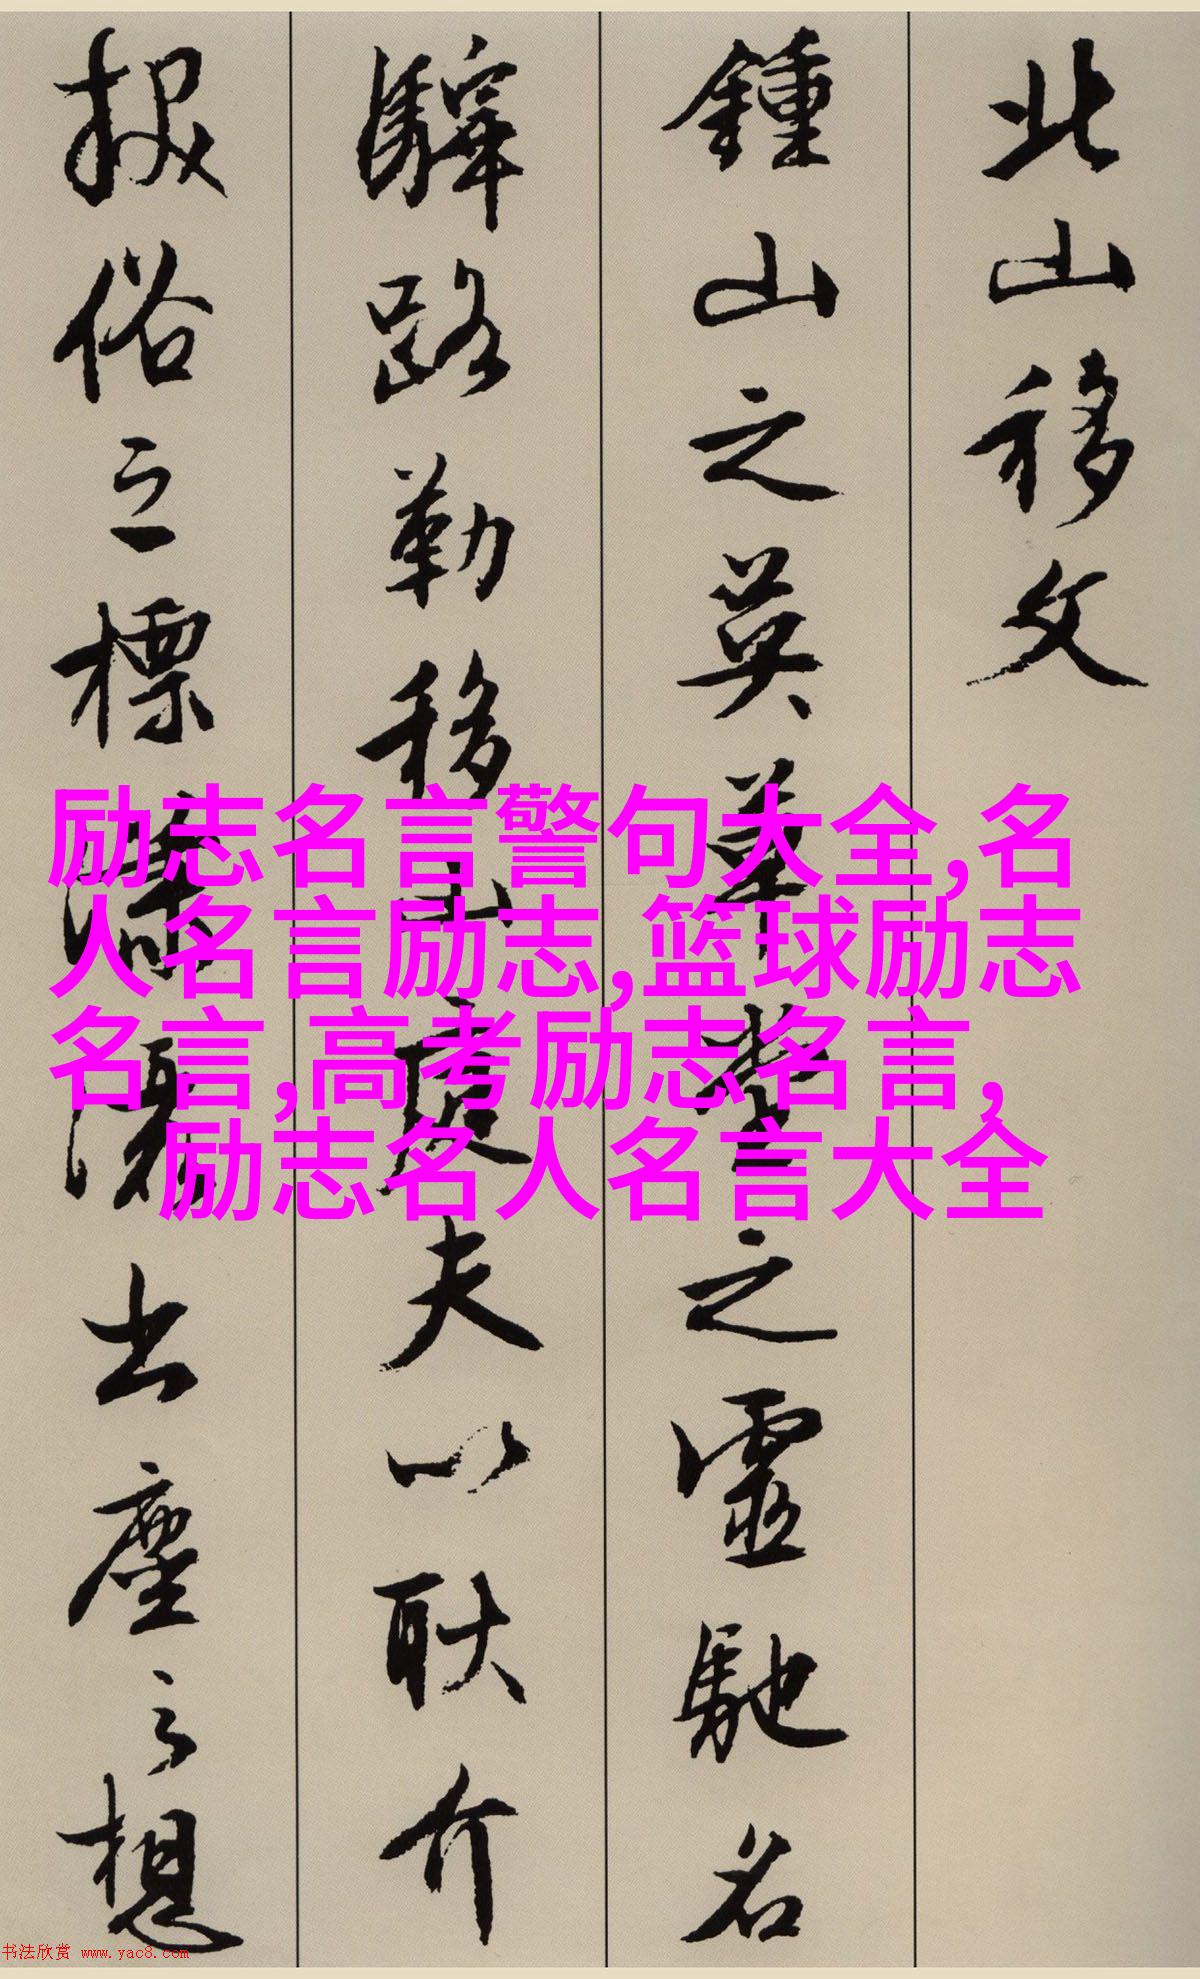 北山移文
鍾山之英草堂之靈馳名
驛路勒移山庭夫以耿介
拔俗之標瀟灑出塵之想
励志名言警句大全,名
人名言励志,篮球励志
名言,高考励志名言,
励志名人名言大全
书法欣赏 www.yac8.com